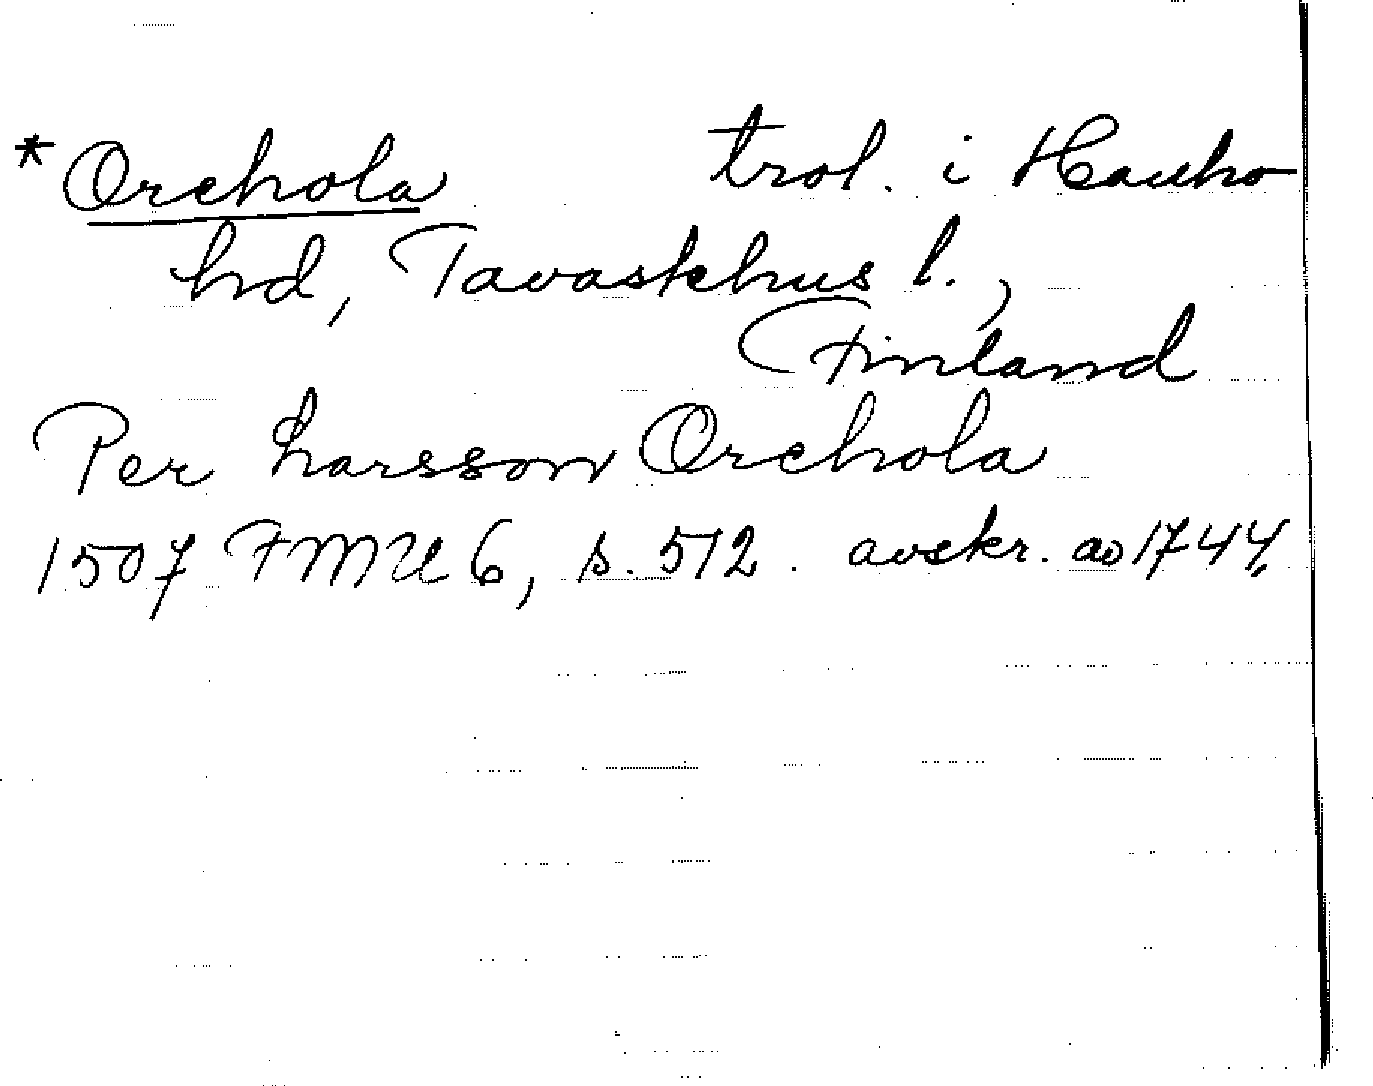 *Orchola trol. i Hauho
hd, Tavastehus l.,
Finland
Per Larsson Orchola
1507 FMU 6, s. 512. avskr. ao 1744.